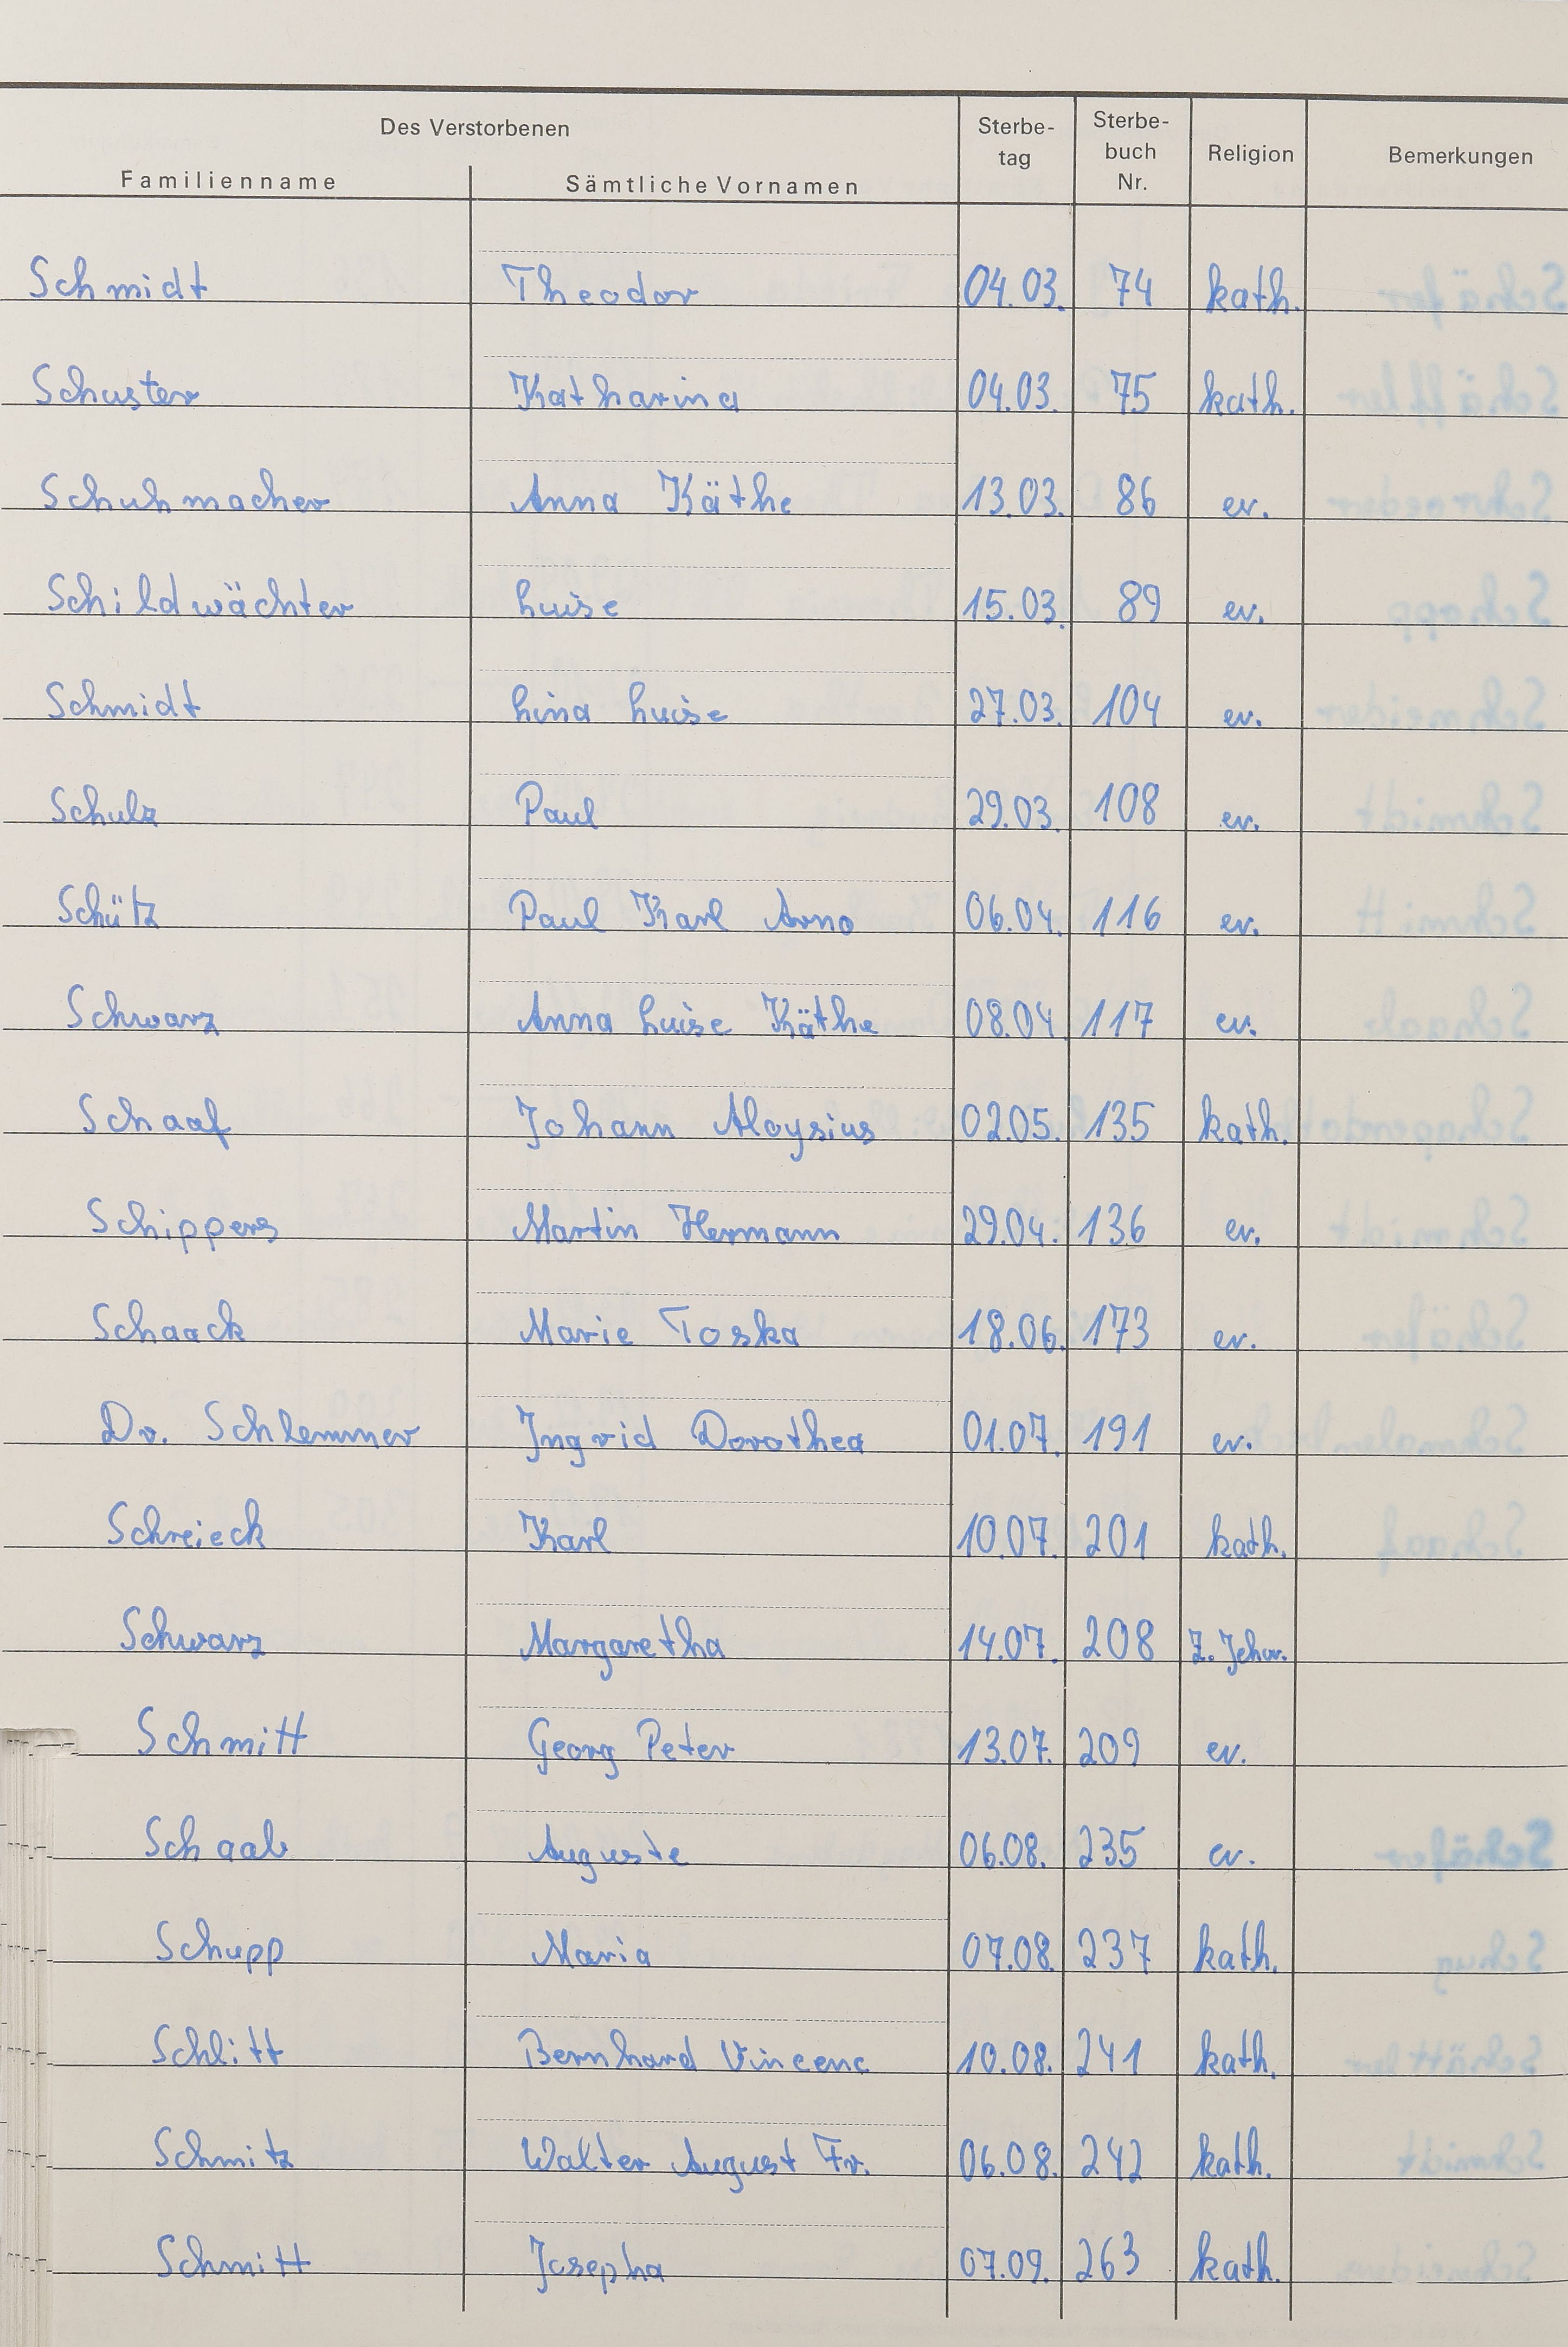 Des Verstorbenen Sterbe-tag Sterbe-buch Nr. Religion Bemerkungen
Familienname Sämtliche Vornamen
Schmidt Theodor 04.03. 74 kath.
Schuster Katharina 04.03. 75 kath.
Schuhmacher Anna Käthe 13.03. 86 ev.
Schildwächter Luise 15.03. 89 ev.
Schmidt Lina Luise 27.03. 104 ev.
Schulz Paul 29.03. 108 ev.
Schütz Paul Karl Arno 06.04. 116 ev.
Schwarz Anna Luise Käthe 08.04. 117 ev.
Schaaf Johann Aloysius 02.05. 135 kath.
Schippers Martin Hermann 29.04. 136 ev.
Schaack Marie Toska 18.06. 173 ev.
Dr. Schlemmer Ingrid Dorothea 01.07. 191 ev.
Schreieck Karl 10.07. 201 kath.
Schwarz Margaretha 14.07. 208 Z. Jehov.
Schmitt Georg Peter 13.07. 209 ev.
Schaab Auguste 06.08. 235 ev.
Schupp Maria 07.08. 237 kath.
Schlitt Bernhard Vincenc 10.08. 241 kath.
Schmitz Walter August Fr. 06.08. 242 kath.
Schmitt Josepha 07.09. 263 kath.